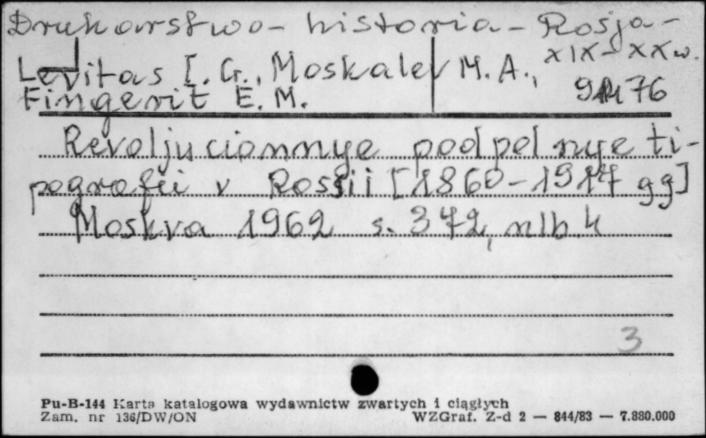 Drukarstwo - historia - Rosja -
XIX - XX w.
Levitas I. G., Moskalev M. A.,
Fingerit E. M. 76
Revoljucionnye podpol'nye ti-
pografii v Rossii [1860-1917 gg]
Moskva 1962 s. 372, nlb. 4
3
Pu-B-144 Karta katalogowa wydawnictw zwartych i ciągłych
Zam. nr 136/DW/ON WZGraf. Z-d 2 — 844/83 — 7.880.000